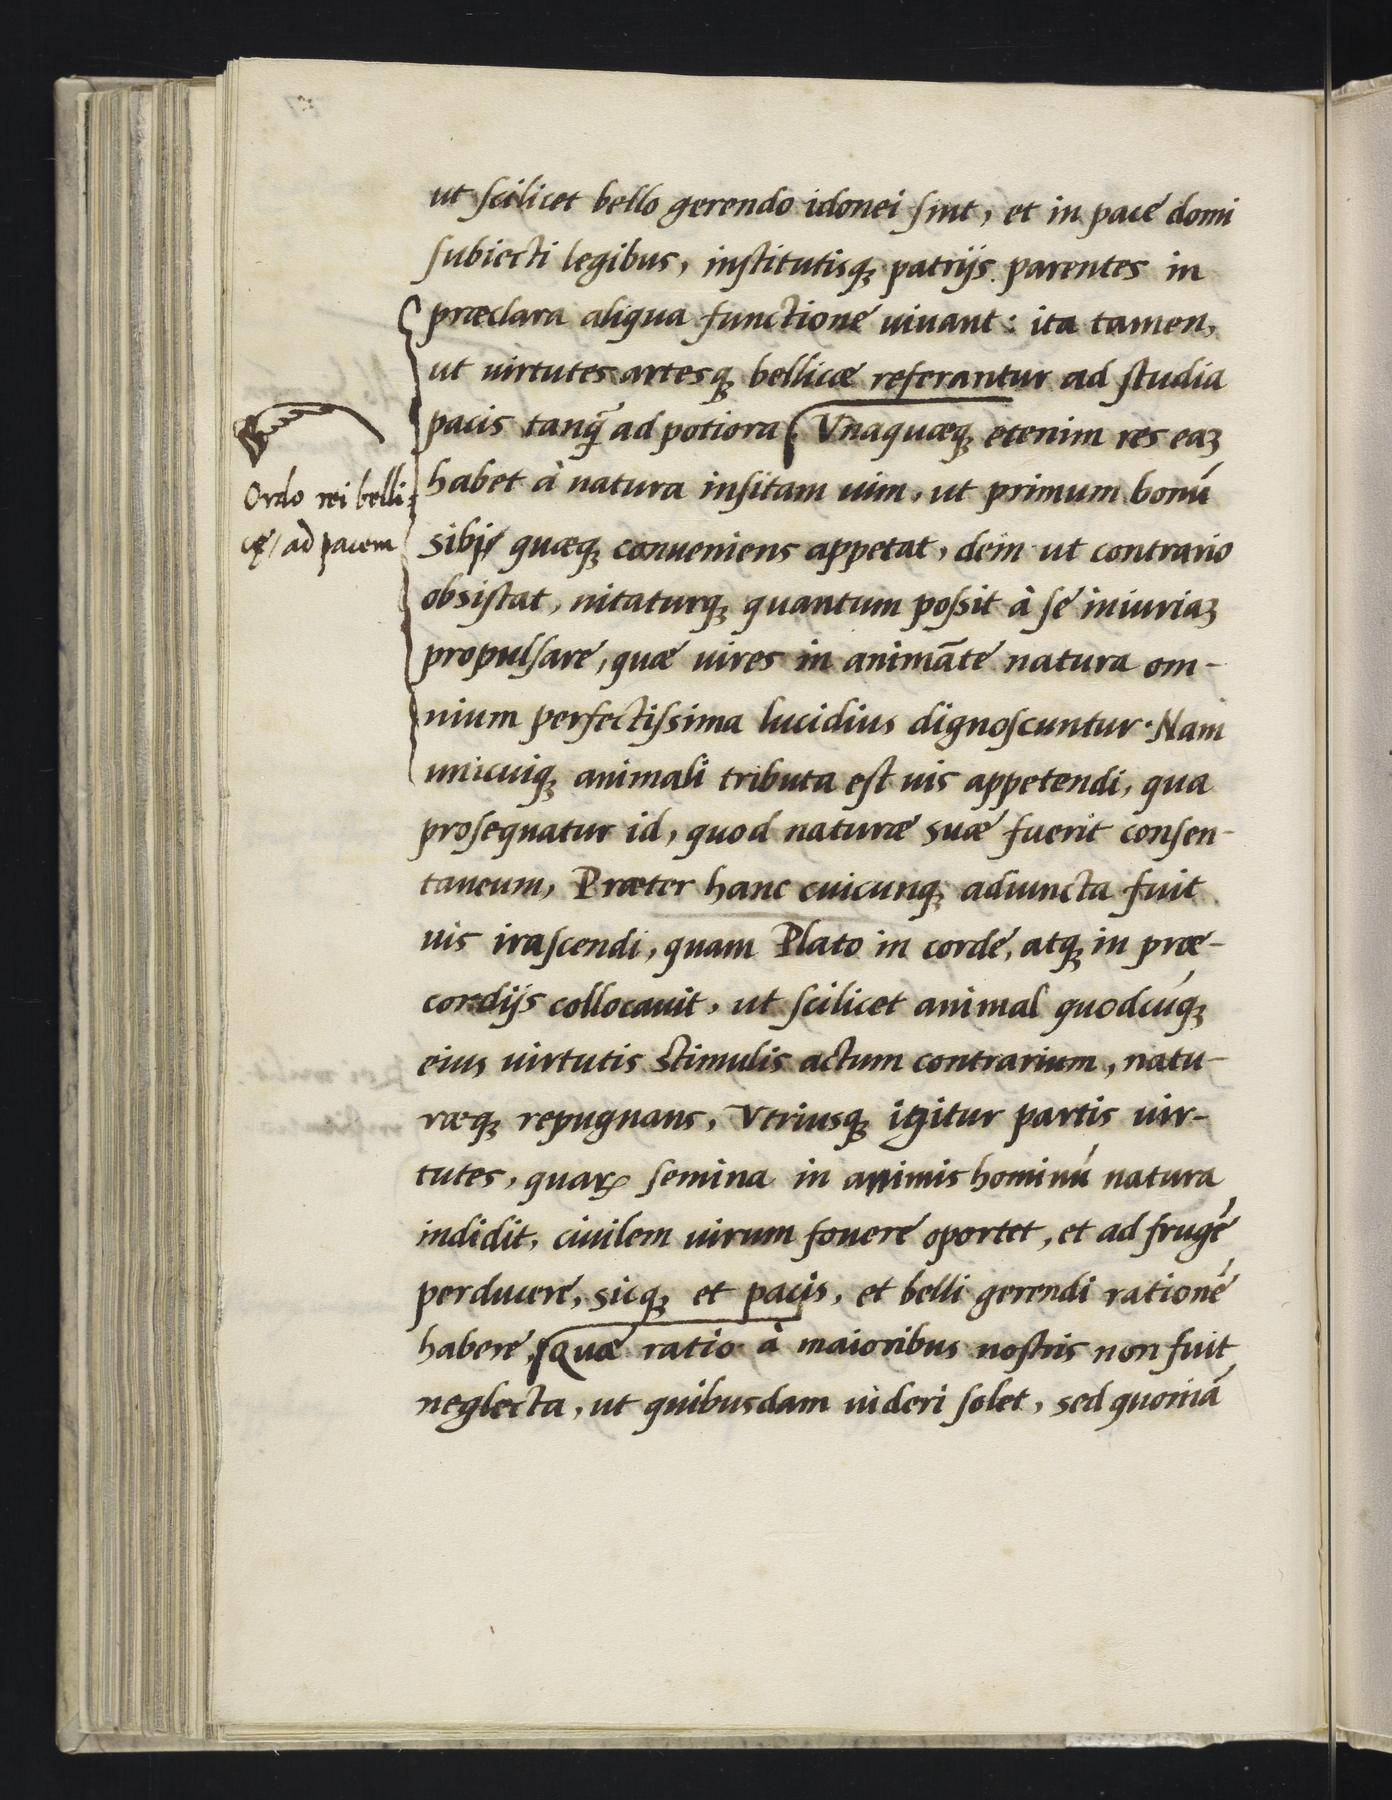 ut scilicet bello gerendo idonei sint, et in pace domi
subiecti legibus, institutisq; patrijs parentes in
præclara aliqua functione uiuant: ita tamen,
ut uirtutes artesq; bellicæ referantur ad studia
pacis tanq̃ ad potiora. Vnaquæq; etenim res eaꝫ
Ordo rei belli-
cę/ ad pacem
habet à natura insitam uim, ut primum bonú
sibi quæq; conueniens appetat, dein ut contrario
obsistat, nitaturq; quantum possit à se iniuriaꝫ
propulsare, quæ uires in animãte natura om-
nium perfectissima lucidius dignoscuntur. Nam
unicuiq; animali tributa est uis appetendi, qua
prosequatur id, quod naturæ suæ fuerit consen-
taneum, Præter hanc cuicunq; adiuncta fuit
uis irascendi, quam Plato in corde, atq; in præ-
cordijs collocauit, ut scilicet animal quodcúq;
eius uirtutis stimulis actum contrarium, natu-
ræq; repugnans, Vtriusq; igitur partis uir-
tutes, quaꝝ semina in animis hominú natura
indidit, ciuilem uirum fouere oportet, et ad frugé
perducere, sicq; et pacis, et belli gerendi rationé
habere, Quæ ratio à maioribus nostris non fuit
neglecta, ut quibusdam uideri solet, sed quoniá